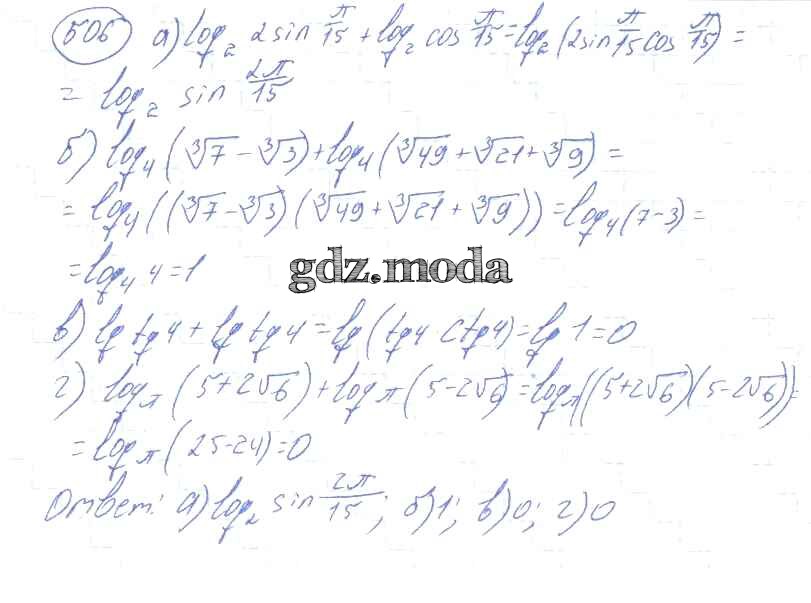 506 а) log₂ 2sin π/15 + log₂ cos π/15 = log₂ (2sin π/15 cos π/15) =
= log₂ sin 2π/15
б) log₄ (∛7 − ∛3) + log₄ (∛49 + ∛21 + ∛9) =
= log₄ ((∛7 − ∛3) (∛49 + ∛21 + ∛9)) = log₄ (7−3) =
= log₄ 4 = 1
gdz.moda
в) lg tg4 + lg tg4 = lg (tg4 ctg4) = lg 1 = 0
г) logπ (5+2√6) + logπ (5−2√6) = logπ ((5+2√6)(5−2√6)) =
= logπ (25−24) = 0
Ответ: а) log₂ sin 2π/15; б) 1; в) 0; г) 0